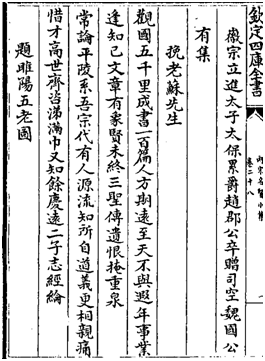 欽定四庫全書
卷二十八
徽宗立進太子太保累爵趙郡公卒贈司空魏國公
有集
挽老蘇先生
觀國五千里成書一百篇人方期遠至天不與遐年事業
逢知己文章有象賢未終三聖傳遺恨掩重泉
常論平陵系吾宗代有人源流知所自道義更相親痛
惜才高世齊咨涕滿巾又知餘慶遠二子志經綸
題睢陽五老圖